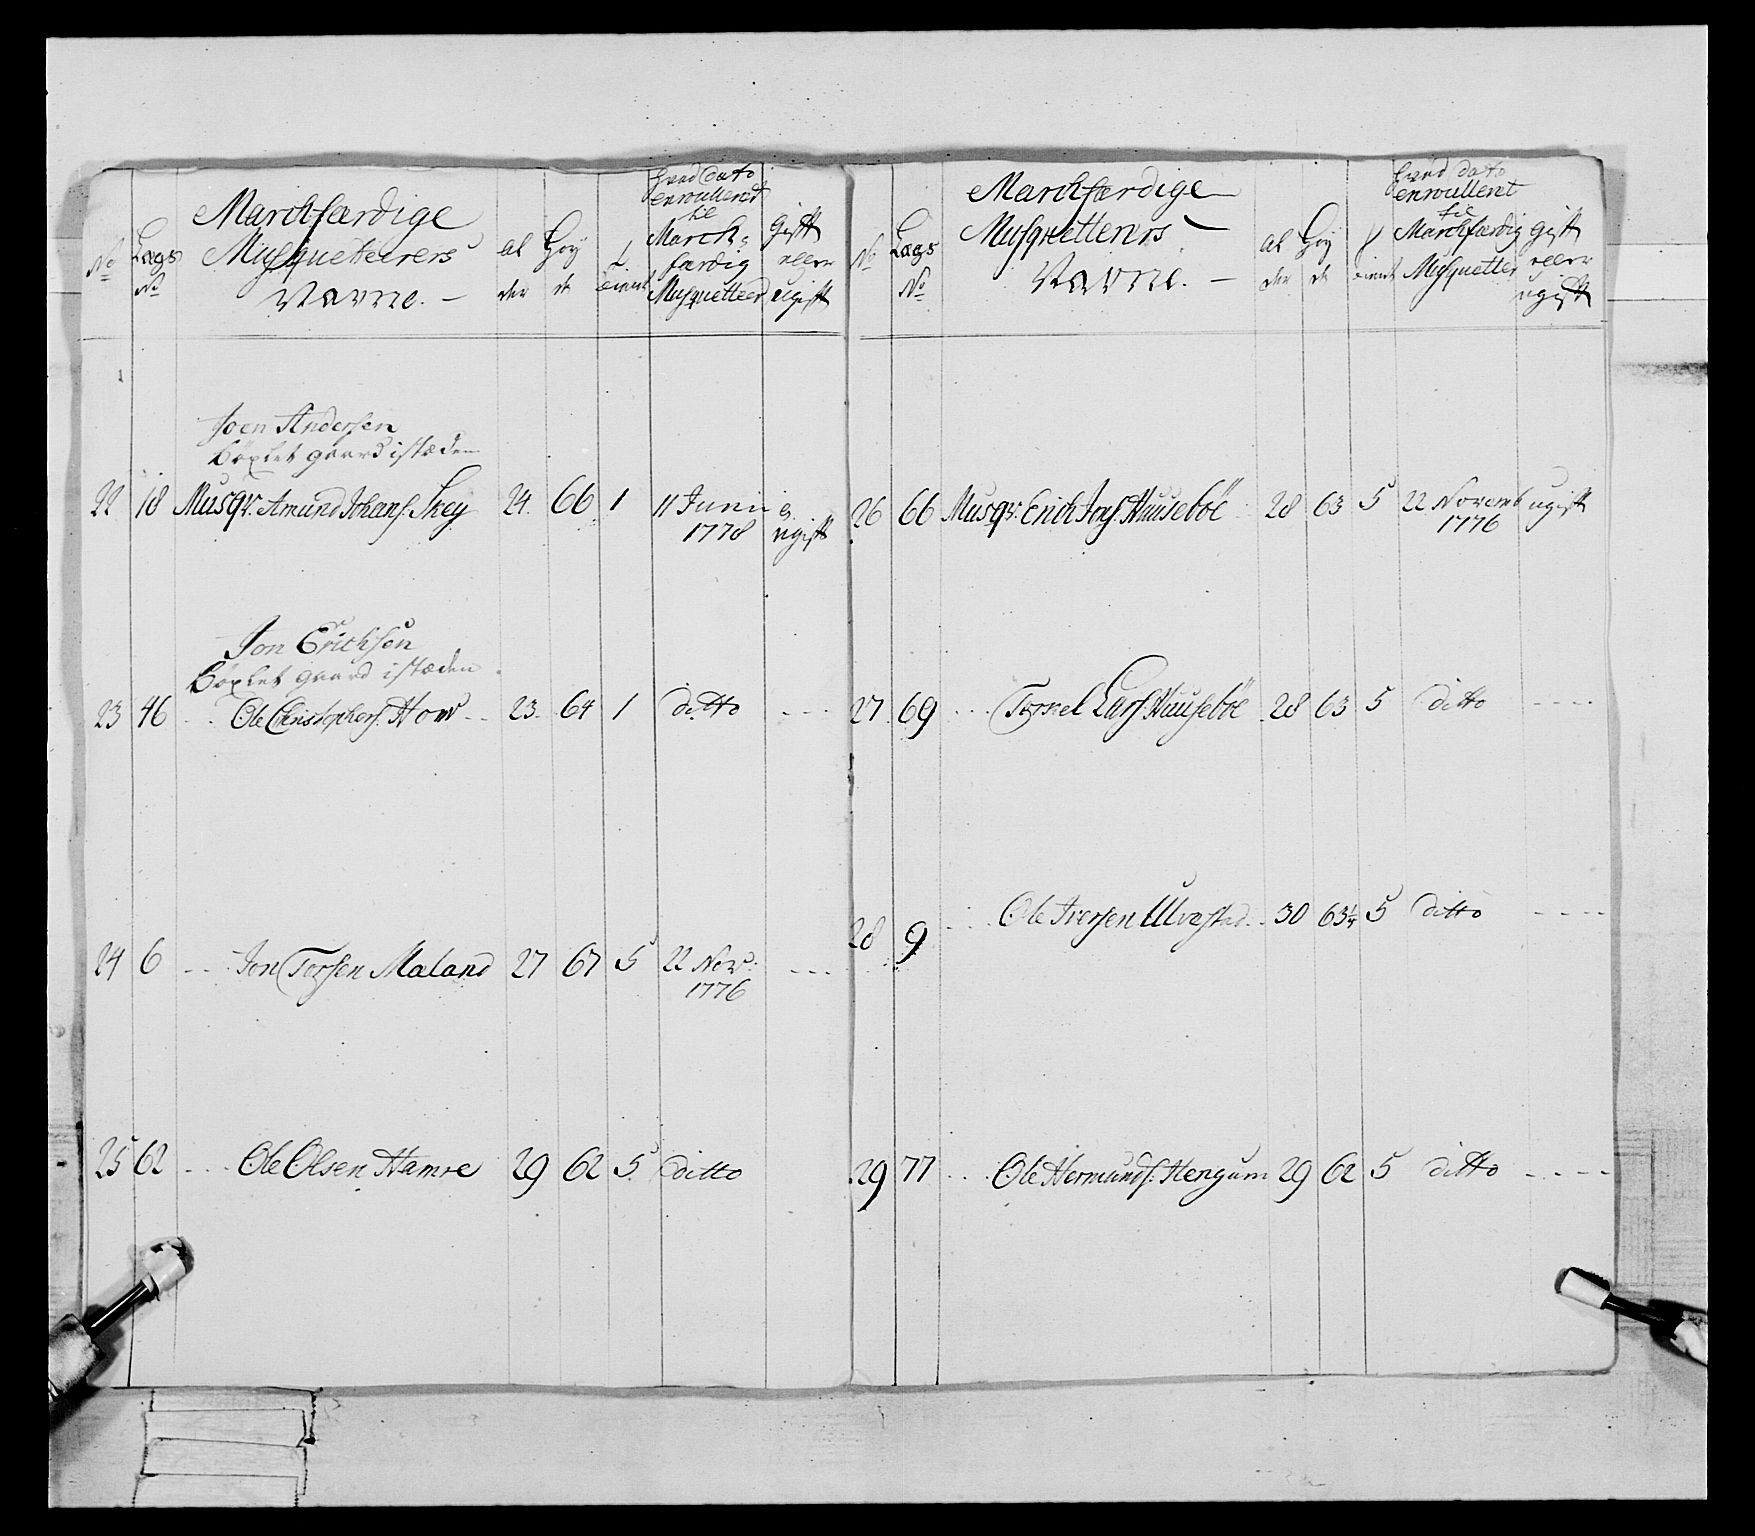 No
Lægs No
Marchfærdige
Musqueteerers
Navne. —
al der
Høy de
tient
hvad Dato
enroulleret
til
March-
færdig
Musquetteer
gift
eller
ugift
Joen Andersen
böxlet gaard i stæden
22 18 Musqr. Amund Johans. Skey 24. 66 1 11 Junii 1778 ugift
Jon Erichsen
böxlet gaard i stæden
23 46 - - Ole Christophers. How - - 23. 64 1 ditto - - -
24 6 - - Jon Torsen Maland 27 67 5 22 Nov: 1776 - - -
25 62 - - - Ole Olsen Hamre 29 62 5 ditto
No
Lægs No
Marchfærdige
Musquetterers —
Navne. —
al der
Høy de
tient
hvad dato
enroulleret
til
Marchfærdig
Musquetter
gift
eller
ugift
26 66 Musqr. Erich Jons. Huuseböe 28 63 5 22 Novemb 1776 ugift
27 69 - - - Torkel Lars. Huuseböe 28 63 5 ditto - - - -
28 9 - - - Ole Iversen Ulvestad - - 30 63¼ 5 ditto - - - -
29 77 - - - Ole Hermunds. Hengum 29 62 5 ditto - - - -